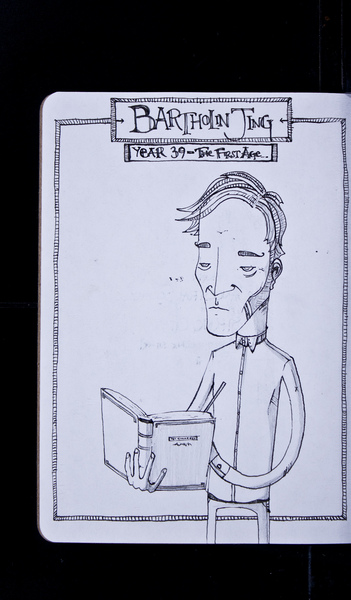 BARTHOLIN TING
YEAR 39 - THE FIRST AGE.